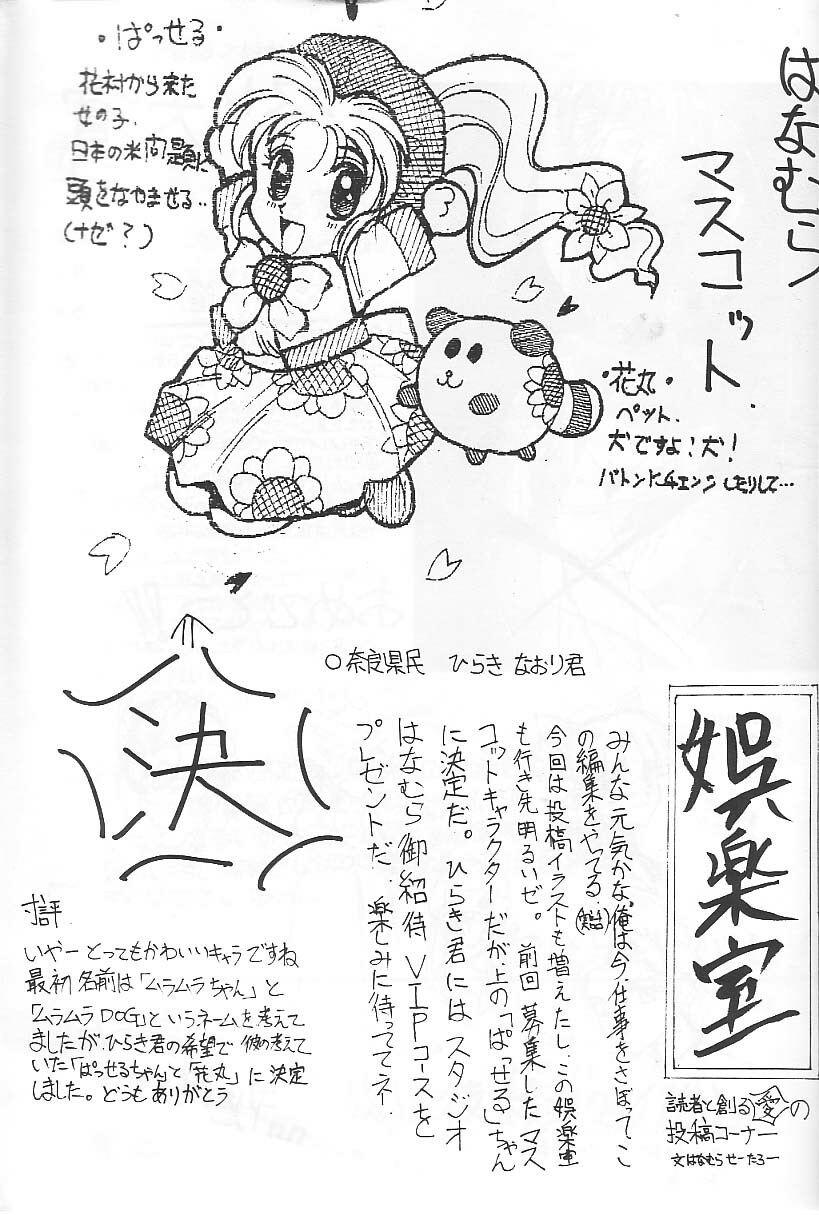 はなむら
マスコット.
・ぱっせる・
花村から来た
女の子.
日本の米問題に
頭をなやませる‥
(ナゼ?)
・花丸・
ペット.
犬ですよ!犬!
バトンにチェンジしたりして…
○奈良県民 ひらき なおり君
決
娯楽室
読者と創る愛の
投稿コーナー
文はなむらせーたろー
みんな元気かな。俺は今、仕事をさぼってこ
の編集をやってる。
今回は投稿イラストも増えたし、この娯楽室
も行き先明るいゼ。前回募集したマス
コットキャラクターだが、上の「ぱっせる」ちゃん
に決定だ。ひらき君にはスタジオ
はなむら御紹待VIPコースを
プレゼントだ。楽しみに待っててネ.
寸評
いやーとってもかわいいキャラですね
最初名前は「ムラムラちゃん」と
「ムラムラDOG」というネームを考えて
ましたが、ひらき君の希望で彼の考えて
いた「ぱっせるちゃん」と「花丸」に決定
しました。どうもありがとう